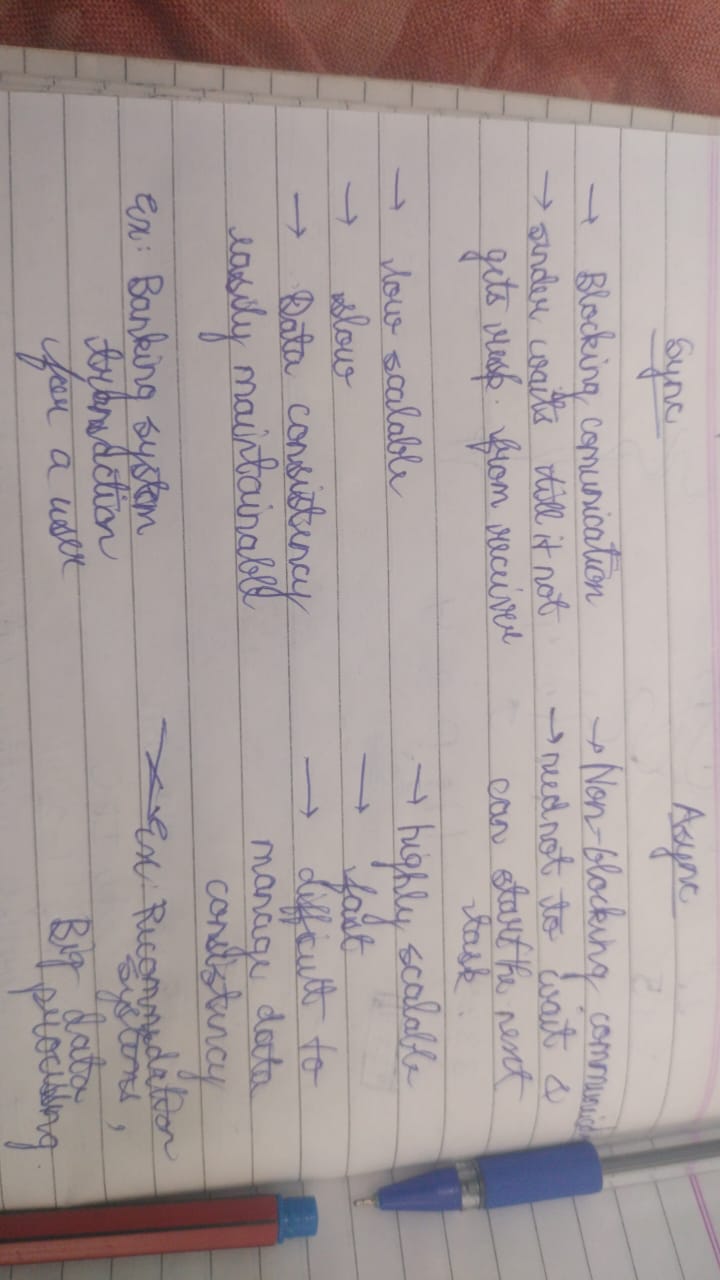 Sync
→ Blocking comunication
→ sender waits till it not
gets resp. from receiver
→ low scalable
→ slow
→ Data consistency
easily maintainable
Ex: Banking system
transaction
for a user
Async
→ Non-blocking communic
→ need not to wait &
can start the next
task.
→ highly scalable
→ fast
→ difficult to
manage data
consistency
Ex: Recommdation
systems,
Big data
processing.